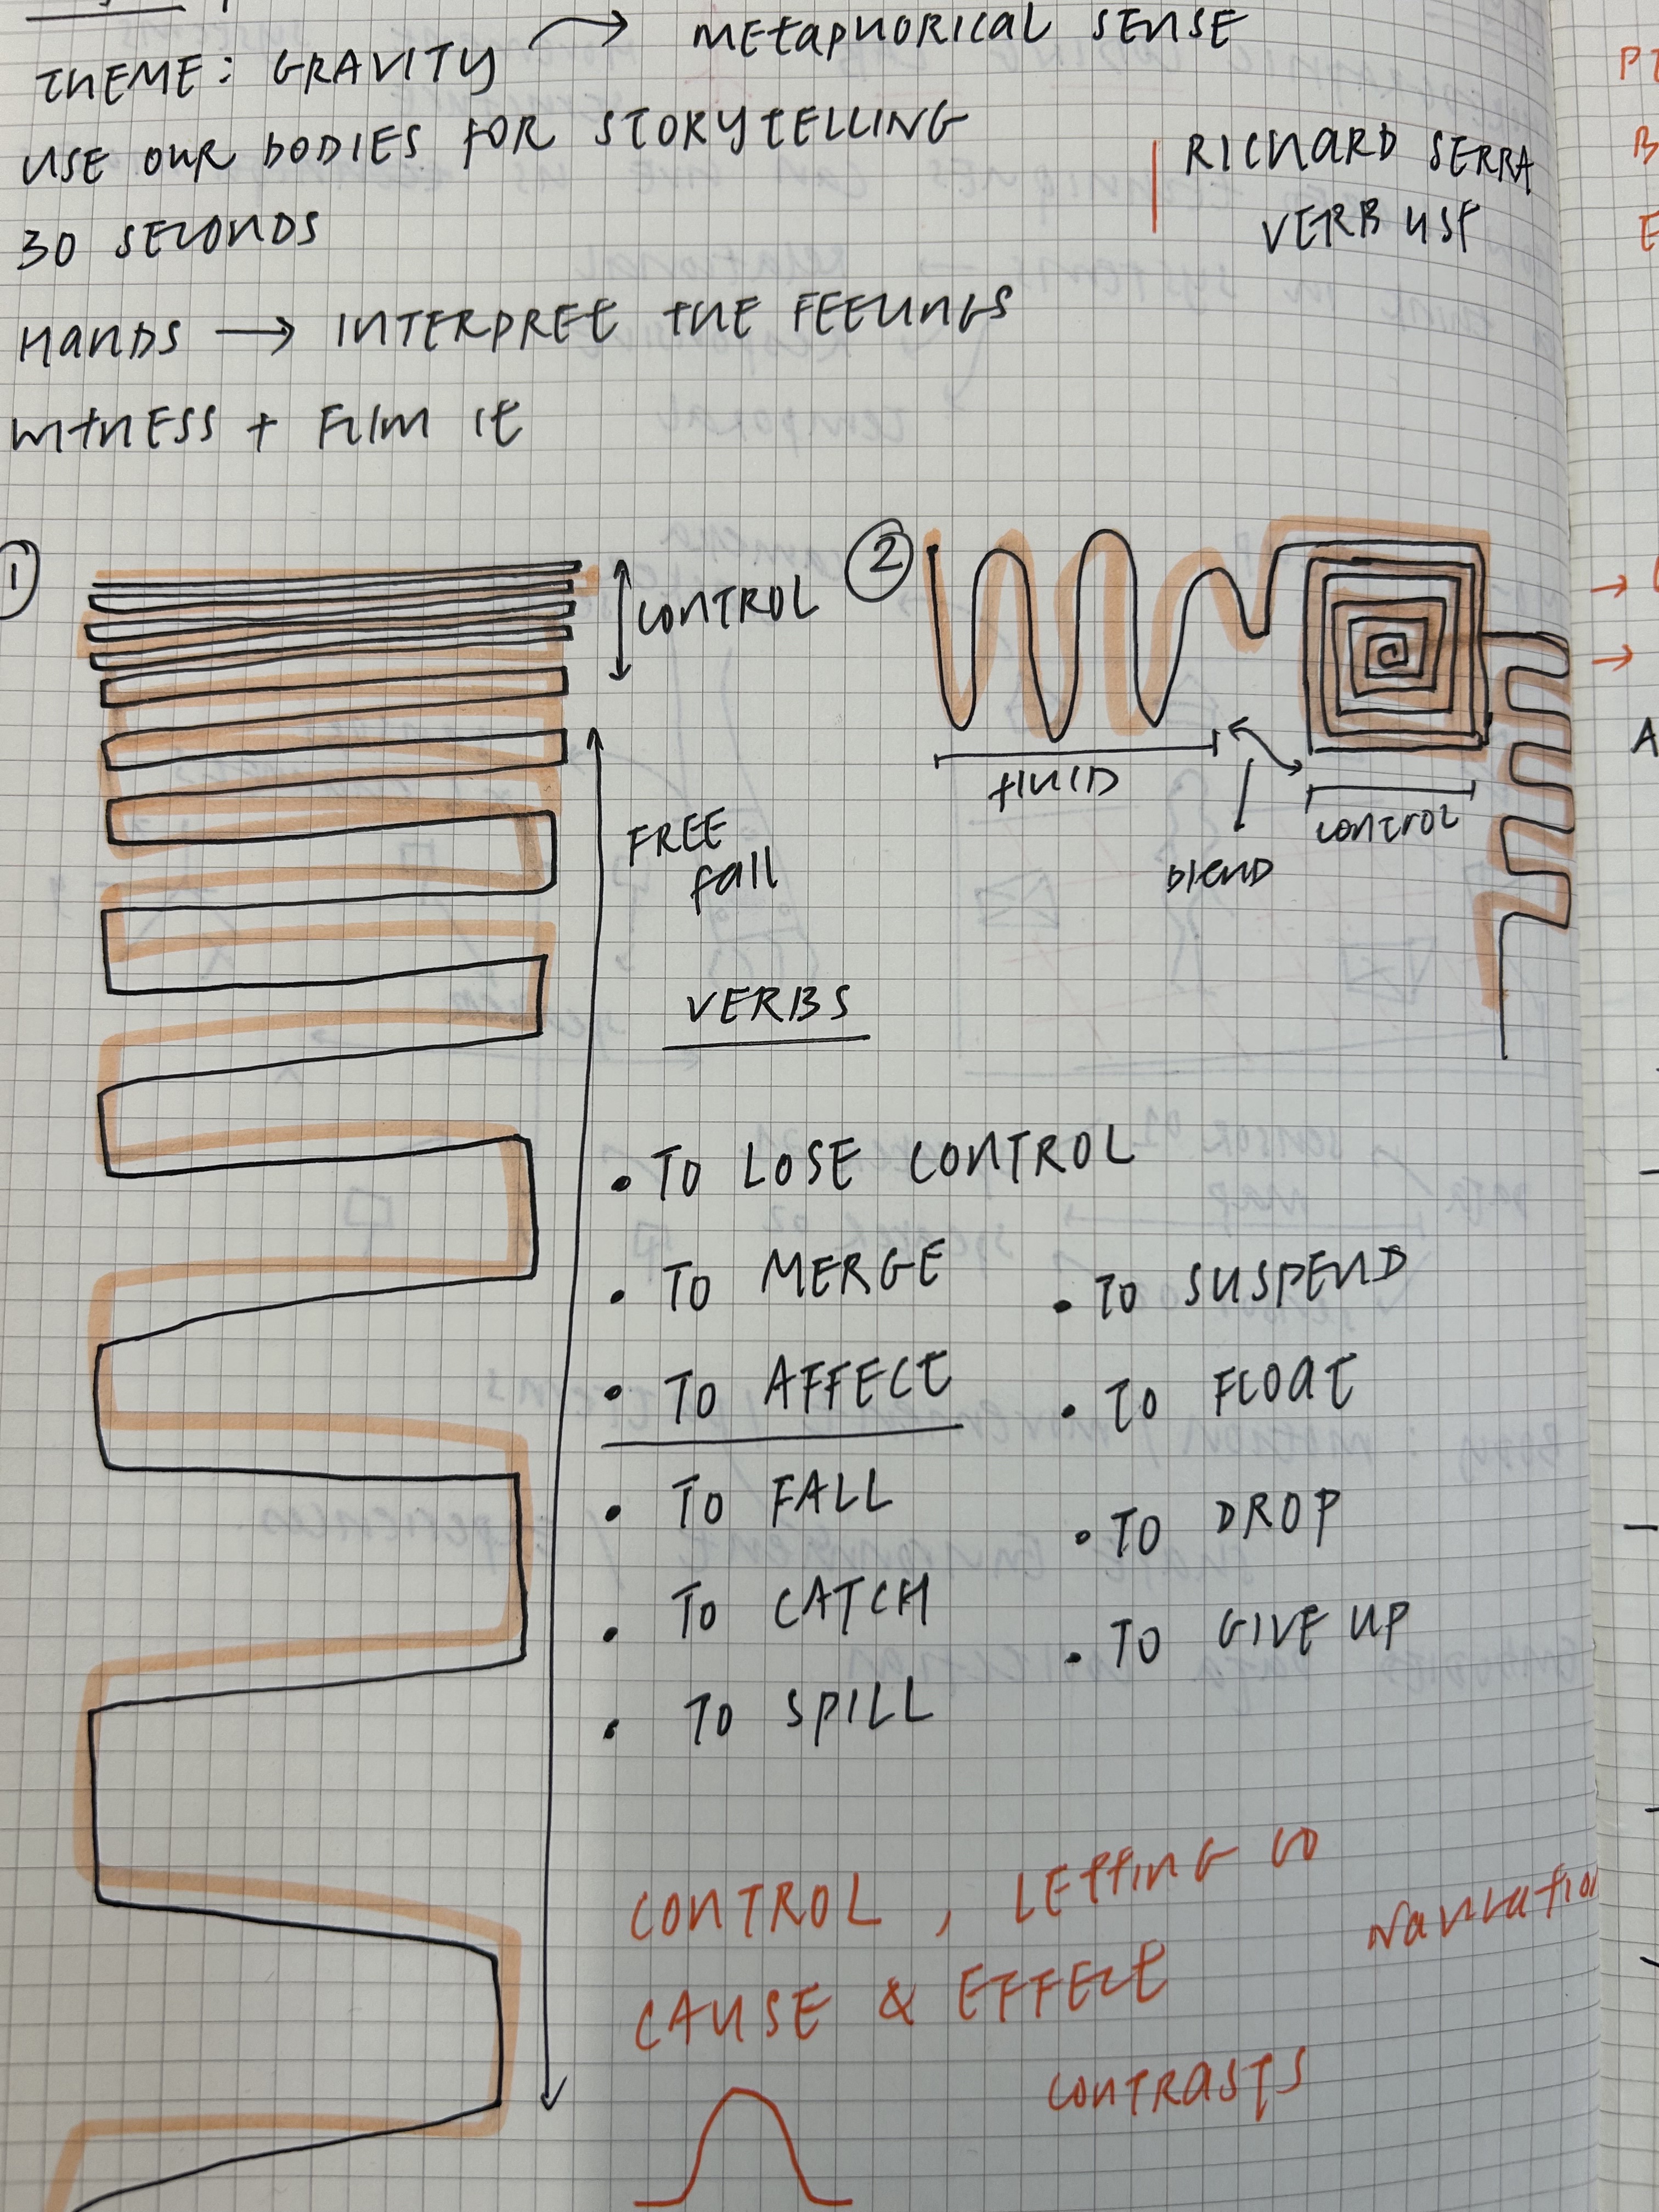 THEME: GRAVITY → METAPHORICAL SENSE
USE OUR BODIES FOR STORYTELLING
30 SECONDS
RICHARD SERRA
VERB LIST
HANDS → INTERPRET THE FEELINGS
WITNESS + FILM IT
1
CONTROL
FREE
fall
2
FLUID
BLEND
CONTROL
VERBS
• TO LOSE CONTROL
• TO MERGE
• TO AFFECT
• TO FALL
• TO CATCH
• TO SPILL
• TO SUSPEND
• TO FLOAT
• TO DROP
• TO GIVE UP
CONTROL, LETTING GO
CAUSE & EFFECT
CONTRASTS
A